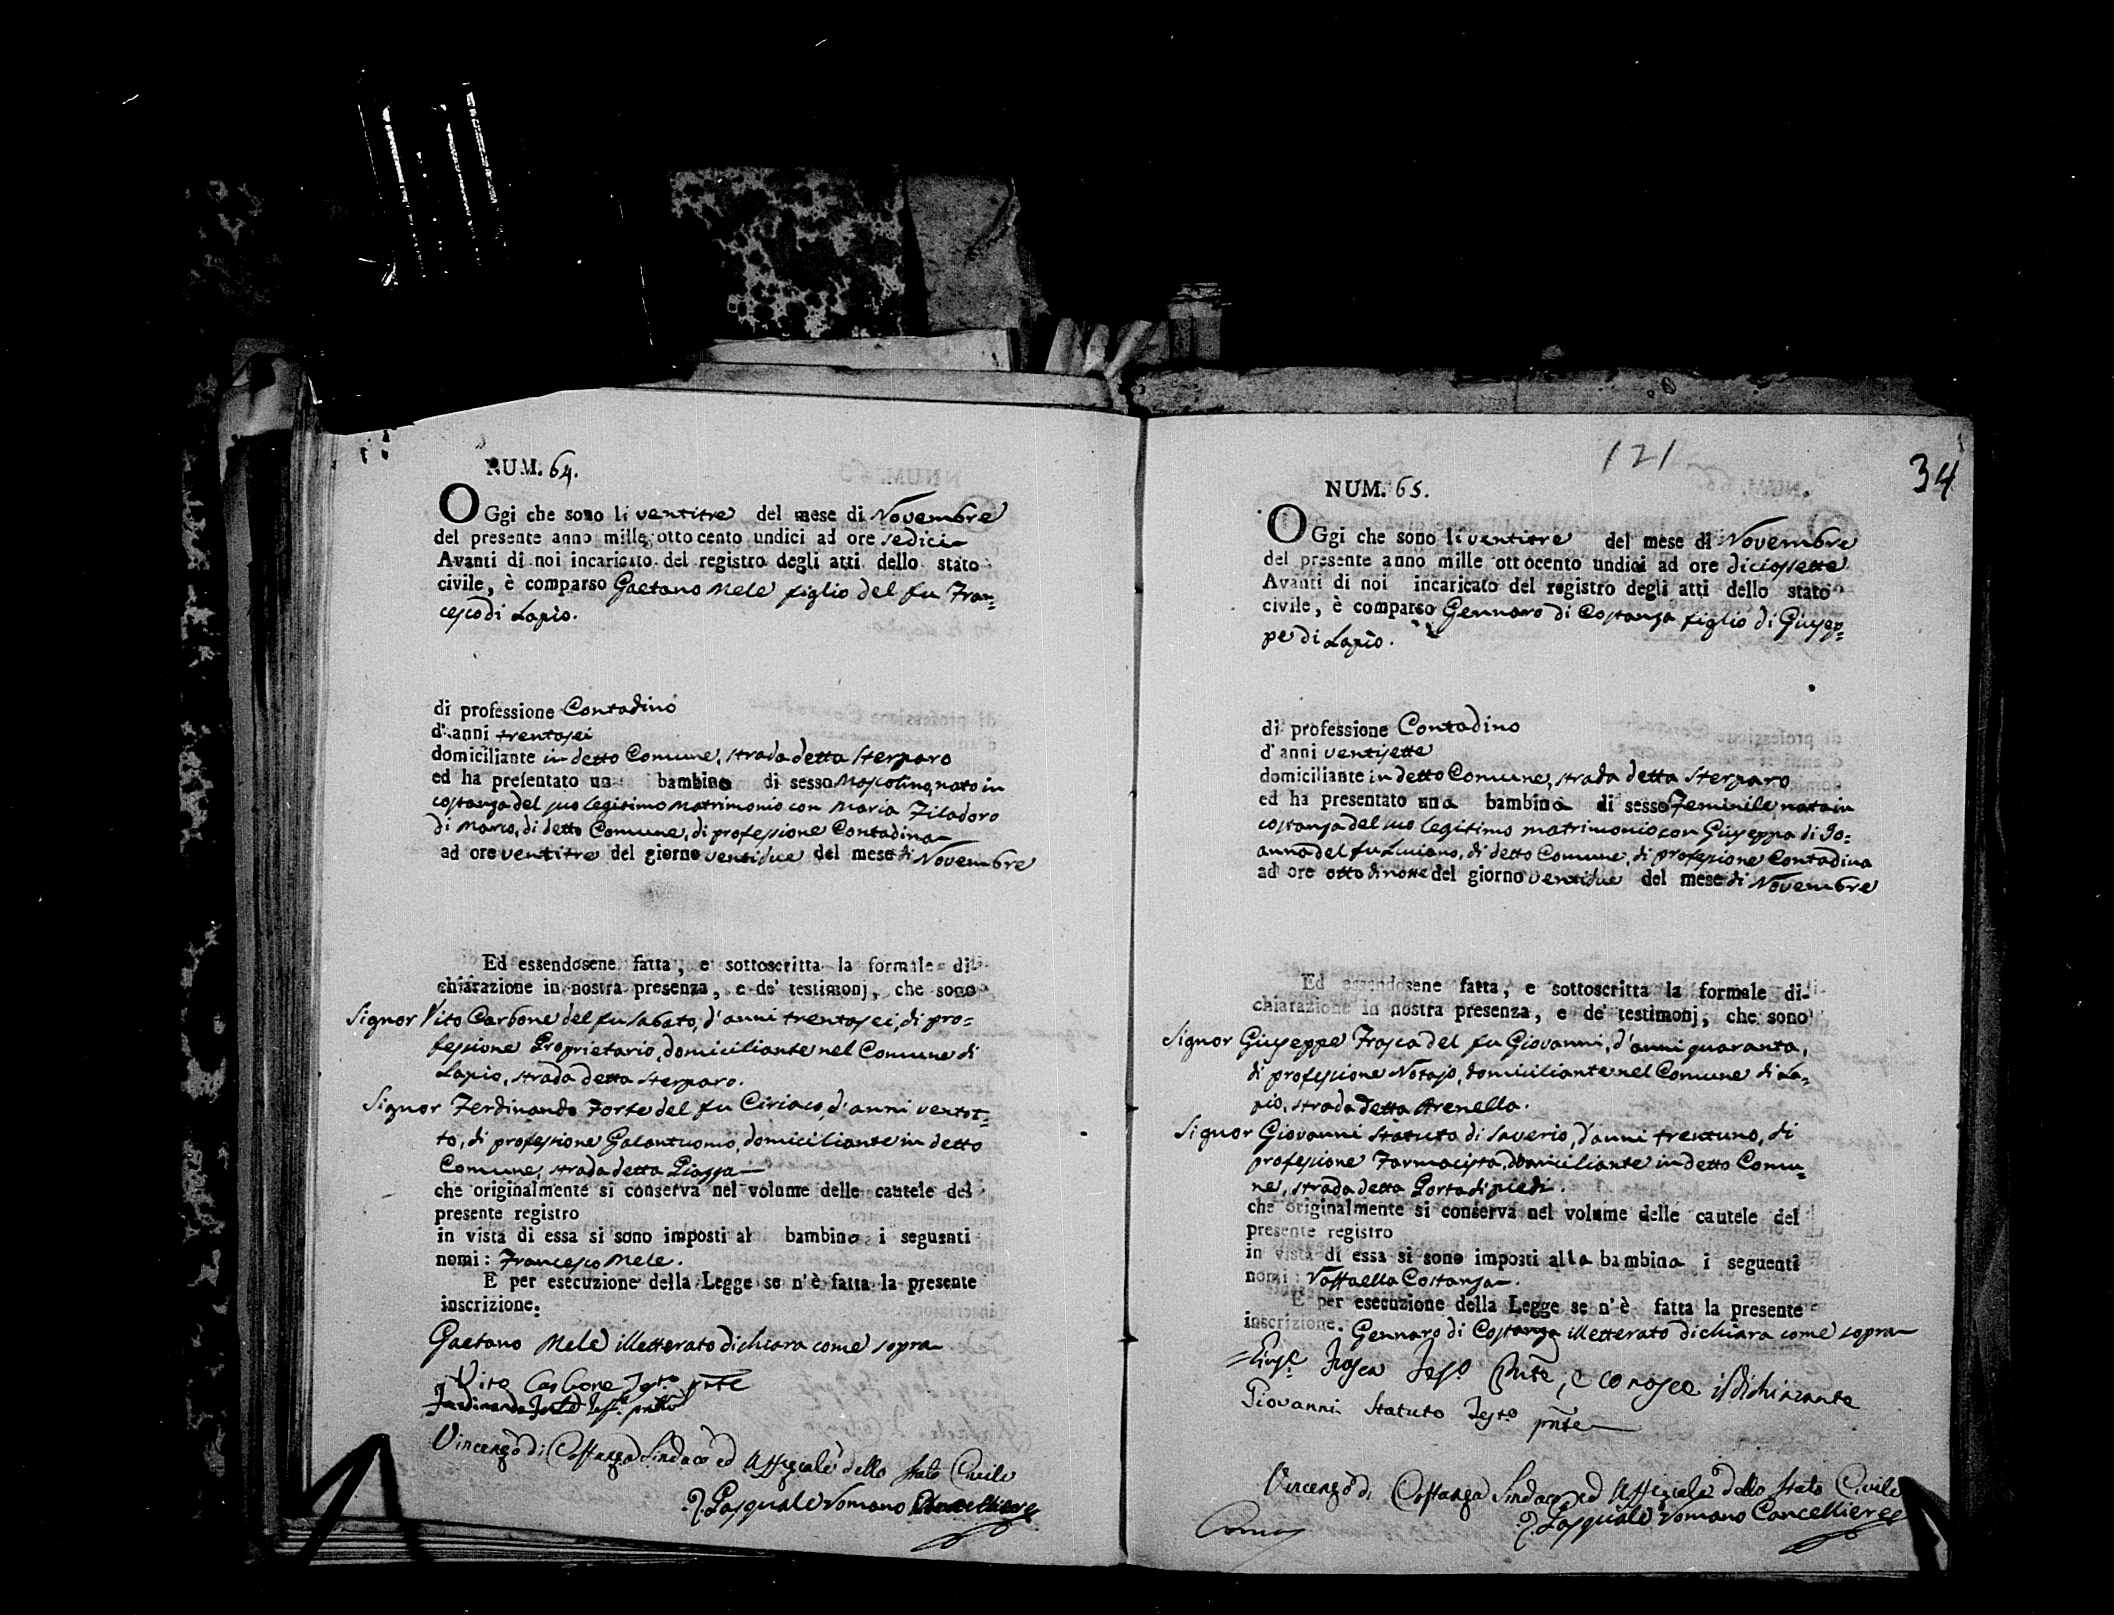 NUM. 64.
OGgi che sono li ventitre del mese di Novembre
del presente anno mille ottocento undici ad ore sedici
Avanti di noi incaricato del registro degli atti dello stato
civile, è comparso Gaetano Mele figlio del fu Fran=
cesco di Lapio.
di professione Contadino
d'anni trentasei
domiciliante in detto Comune, strada detta Sterparo
ed ha presentato un bambino di sesso Mascolino, nato in
costanza del suo legitimo Matrimonio con Maria Filadoro
di Marco, di detto Comune, di professione Contadina
ad ore ventitre del giorno ventidue del mese di Novembre
Ed essendosene fatta, e sottoscritta la formale di-
chiarazione in nostra presenza, e de' testimonj, che sono
Signor Vito Carbone del fu Sabato, d'anni trentasei, di pro=
fessione Proprietario, domiciliante nel Comune di
Lapio, strada detta Sterparo.
Signor Ferdinando Forte del fu Ciriaco, d'anni ventot=
to, di professione Galantuomo, domiciliante in detto
Comune, strada detta Piazza
che originalmente si conserva nel volume delle cautele del
presente registro
in vista di essa si sono imposti al bambino i seguenti
nomi: Francesco Mele.
E per esecuzione della Legge se n'è fatta la presente
inscrizione.
Gaetano Mele illetterato dichiara come sopra
Vito Carbone Testo pnte
Ferdinando Forte Testo pnte
Vincenzo di Costanza Sindaco ed Uffiziale dello Stato Civile
Pasquale Romano Cancelliere
121
34
NUM. 65.
OGgi che sono li ventitre del mese di Novembre
del presente anno mille ottocento undici ad ore diciassette
Avanti di noi incaricato del registro degli atti dello stato
civile, è comparso Gennaro di Costanza figlio di Giusep=
pe di Lapio.
di professione Contadino
d'anni ventisette
domiciliante in detto Comune, strada detta Sterparo
ed ha presentato una bambina di sesso Feminile, nata in
costanza del suo legitimo matrimonio con Giuseppa di Jo=
anna del fu Luciano, di detto Comune, di professione Contadina
ad ore otto di notte del giorno ventidue del mese di Novembre
Ed essendosene fatta, e sottoscritta la formale di-
chiarazione in nostra presenza, e de' testimonj, che sono
Signor Giuseppe Frasca del fu Giovanni, d'anni quaranta,
di professione Notajo, domiciliante nel Comune di La=
pio, strada detta Arenella.
Signor Giovanni Statuto di Saverio, d'anni trentuno, di
professione Farmacista, domiciliante in detto Comu=
ne, strada detta Porta di piedi.
che originalmente si conserva nel volume delle cautele del
presente registro
in vista di essa si sono imposti alla bambina i seguenti
nomi: Raffaella Costanza.
E per esecuzione della Legge se n'è fatta la presente
inscrizione. Gennaro di Costanza illetterato dichiara come sopra
Giuse Frasca Testo pnte, e conosce il dichiarante
Giovanni Statuto Testo pnte
Vincenzo di Costanza Sindaco ed Uffiziale dello Stato Civile
Pasquale Romano Cancelliere